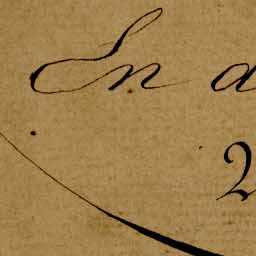 En a
2